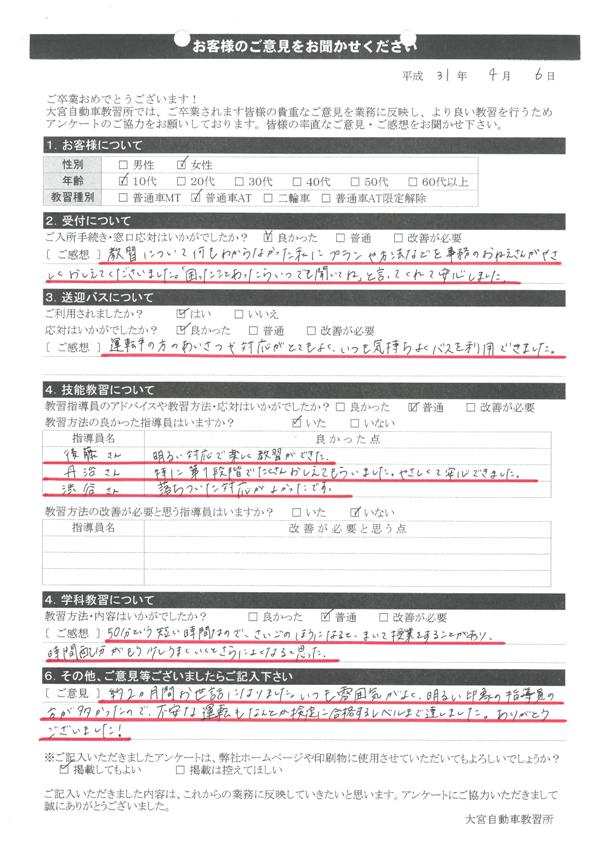 お客様のご意見をお聞かせください
平成 31 年 4 月 6 日
ご卒業おめでとうございます！
大宮自動車教習所では、ご卒業されます皆様の貴重なご意見を業務に反映し、より良い教習を行うため
アンケートのご協力をお願いしております。皆様の率直なご意見・ご感想をお聞かせ下さい。
1. お客様について
性別 □ 男性 ☑ 女性
年齢 ☑ 10代 □ 20代 □ 30代 □ 40代 □ 50代 □ 60代以上
教習種別 □ 普通車MT ☑ 普通車AT □ 二輪車 □ 普通車AT限定解除
2. 受付について
ご入所手続き・窓口応対はいかがでしたか？ ☑ 良かった □ 普通 □ 改善が必要
［ ご感想 ］ 教習について何もわからなかった私にプランや方法などを事務のおねえさんがやさ
しくおしえてくださいました。「困ったことあったらいつでも聞いてね」と言ってくれて安心しました。
3. 送迎バスについて
ご利用されましたか？ ☑ はい □ いいえ
応対はいかがでしたか？ ☑ 良かった □ 普通 □ 改善が必要
［ ご感想 ］ 運転手の方のあいさつや対応がとてもよく、いつも気持ちよくバスを利用できました。
4. 技能教習について
教習指導員のアドバイスや教習方法・応対はいかがでしたか？ □ 良かった ☑ 普通 □ 改善が必要
教習方法の良かった指導員はいますか？ ☑ いた □ いない
指導員名 良かった点
後藤さん 明るい対応で楽しく教習ができた.
丹治さん 特に第1段階でたくさんおしえてもらいました。やさしくて安心できました。
渋谷さん 落ちついた対応がよかったです。
教習方法の改善が必要と思う指導員はいますか？ □ いた ☑ いない
指導員名 改善が必要と思う点
4. 学科教習について
教習方法・内容はいかがでしたか？ □ 良かった ☑ 普通 □ 改善が必要
［ ご感想 ］ 50分という短い時間なので、さいごのほうになると、まいて授業をすることがあり、
時間配分がもう少しうまくいくとさらによくなると思った。
6. その他、ご意見等ございましたらご記入下さい
［ ご意見 ］ 約2ヵ月間お世話になりました。いつも雰囲気がよく、明るい印象の指導員の
方が多かったので、不安な運転もなんとか検定に合格するレベルまで達しました。ありがとう
ございました！
※ご記入いただきましたアンケートは、弊社ホームページや印刷物に使用させていただいてもよろしいでしょうか？
☑ 掲載してもよい □ 掲載は控えてほしい
ご記入いただきました内容は、これからの業務に反映していきたいと思います。アンケートにご協力いただきまして
誠にありがとうございました。
大宮自動車教習所